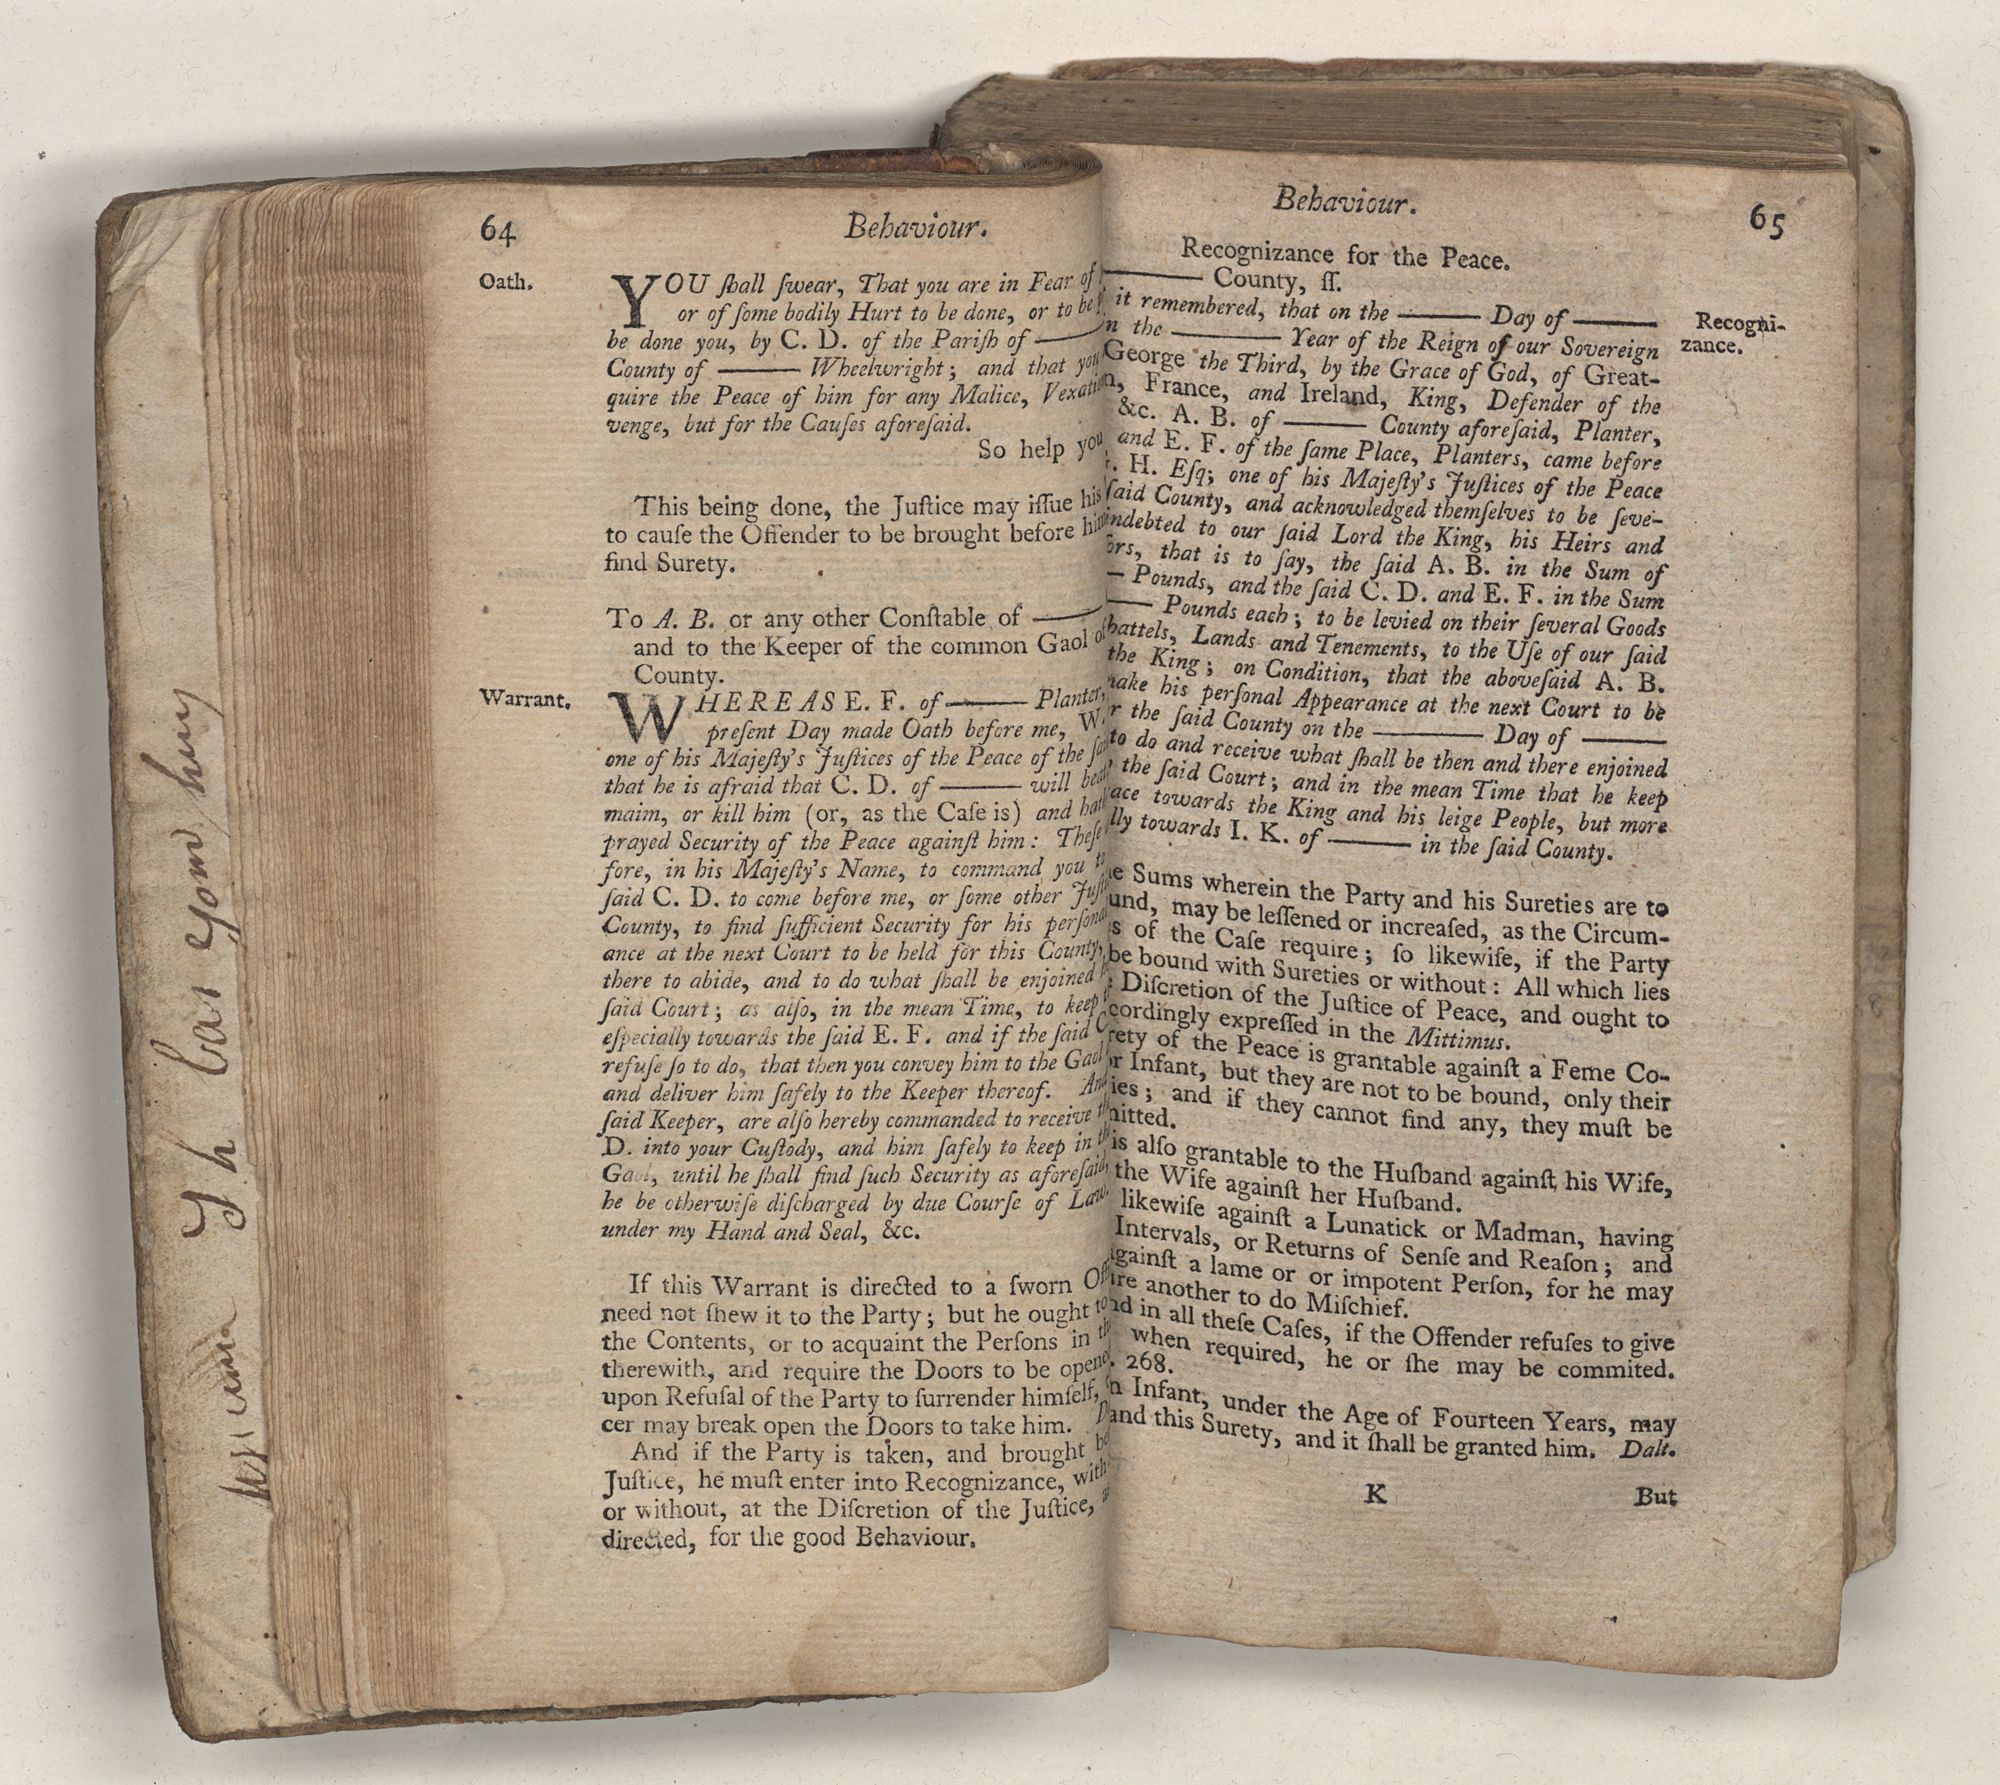 64
Behaviour.
Oath.
YOU ſhall ſwear, That you are in Fear of
or of ſome bodily Hurt to be done, or to be
be done you, by C. D. of the Pariſh of ———
County of ——— Wheelwright; and that you
quire the Peace of him for any Malice,
venge, but for the Cauſes aforeſaid.
So help you
This being done, the Juſtice may iſſue his
to cauſe the Offender to be brought before
find Surety.
To A. B. or any other Conſtable of ———
and to the Keeper of the common Gaol
County.
Warrant.
WHEREAS E. F. of ——— Planter,
preſent Day made Oath before me, W.
one of his Majeſty's Juſtices of the Peace of the
that he is afraid that C. D. of ——— will
maim, or kill him (or, as the Caſe is) and
prayed Security of the Peace againſt him: Theſe
fore, in his Majeſty's Name, to command you
ſaid C. D. to come before me, or ſome other
County, to find ſufficient Security for his
ance at the next Court to be held for this County,
there to abide, and to do what ſhall be enjoined
ſaid Court; as alſo, in the mean Time, to keep
eſpecially towards the ſaid E. F. and if the ſaid
refuſe ſo to do, that then you convey him to the Gaol
and deliver him ſafely to the Keeper thereof. And
ſaid Keeper, are alſo hereby commanded to receive
D. into your Cuſtody, and him ſafely to keep in
Gaol, until he ſhall find ſuch Security as aforeſaid,
he be otherwiſe diſcharged by due Courſe of Law.
under my Hand and Seal, &c.
If this Warrant is directed to a ſworn
need not ſhew it to the Party; but he ought to
the Contents, or to acquaint the Perſons in
therewith, and require the Doors to be
upon Refuſal of the Party to ſurrender himſelf,
cer may break open the Doors to take him.
And if the Party is taken, and brought
Juſtice, he muſt enter into Recognizance, with
or without, at the Diſcretion of the Juſtice,
directed, for the good Behaviour.
Behaviour.
65
Recognizance for the Peace.
——— County, ſſ.
it remembered, that on the ——— Day of ———
Recogni-
zance.
the ——— Year of the Reign of our Sovereign
George the Third, by the Grace of God, of Great-
France, and Ireland, King, Defender of the
&c. A. B. of ——— County aforeſaid, Planter,
and E. F. of the ſame Place, Planters, came before
H. Eſq; one of his Majeſty's Juſtices of the Peace
ſaid County, and acknowledged themſelves to be ſeve-
indebted to our ſaid Lord the King, his Heirs and
ors, that is to ſay, the ſaid A. B. in the Sum of
— Pounds, and the ſaid C. D. and E. F. in the Sum
—— Pounds each; to be levied on their ſeveral Goods
hattels, Lands and Tenements, to the Uſe of our ſaid
the King; on Condition, that the aboveſaid A. B.
make his perſonal Appearance at the next Court to be
r the ſaid County on the ——— Day of ———
to do and receive what ſhall be then and there enjoined
the ſaid Court; and in the mean Time that he keep
ace towards the King and his leige People, but more
lly towards I. K. of ——— in the ſaid County.
e Sums wherein the Party and his Sureties are to
und, may be leſſened or increaſed, as the Circum-
s of the Caſe require; ſo likewiſe, if the Party
be bound with Sureties or without: All which lies
Diſcretion of the Juſtice of Peace, and ought to
cordingly expreſſed in the Mittimus.
rety of the Peace is grantable againſt a Feme Co-
r Infant, but they are not to be bound, only their
ies; and if they cannot find any, they muſt be
mitted.
is alſo grantable to the Huſband againſt his Wife,
the Wife againſt her Huſband.
likewiſe againſt a Lunatick or Madman, having
Intervals, or Returns of Senſe and Reaſon; and
againſt a lame or or impotent Perſon, for he may
ire another to do Miſchief.
nd in all theſe Caſes, if the Offender refuſes to give
when required, he or ſhe may be commited.
268.
n Infant, under the Age of Fourteen Years, may
and this Surety, and it ſhall be granted him. Dalt.
K
But